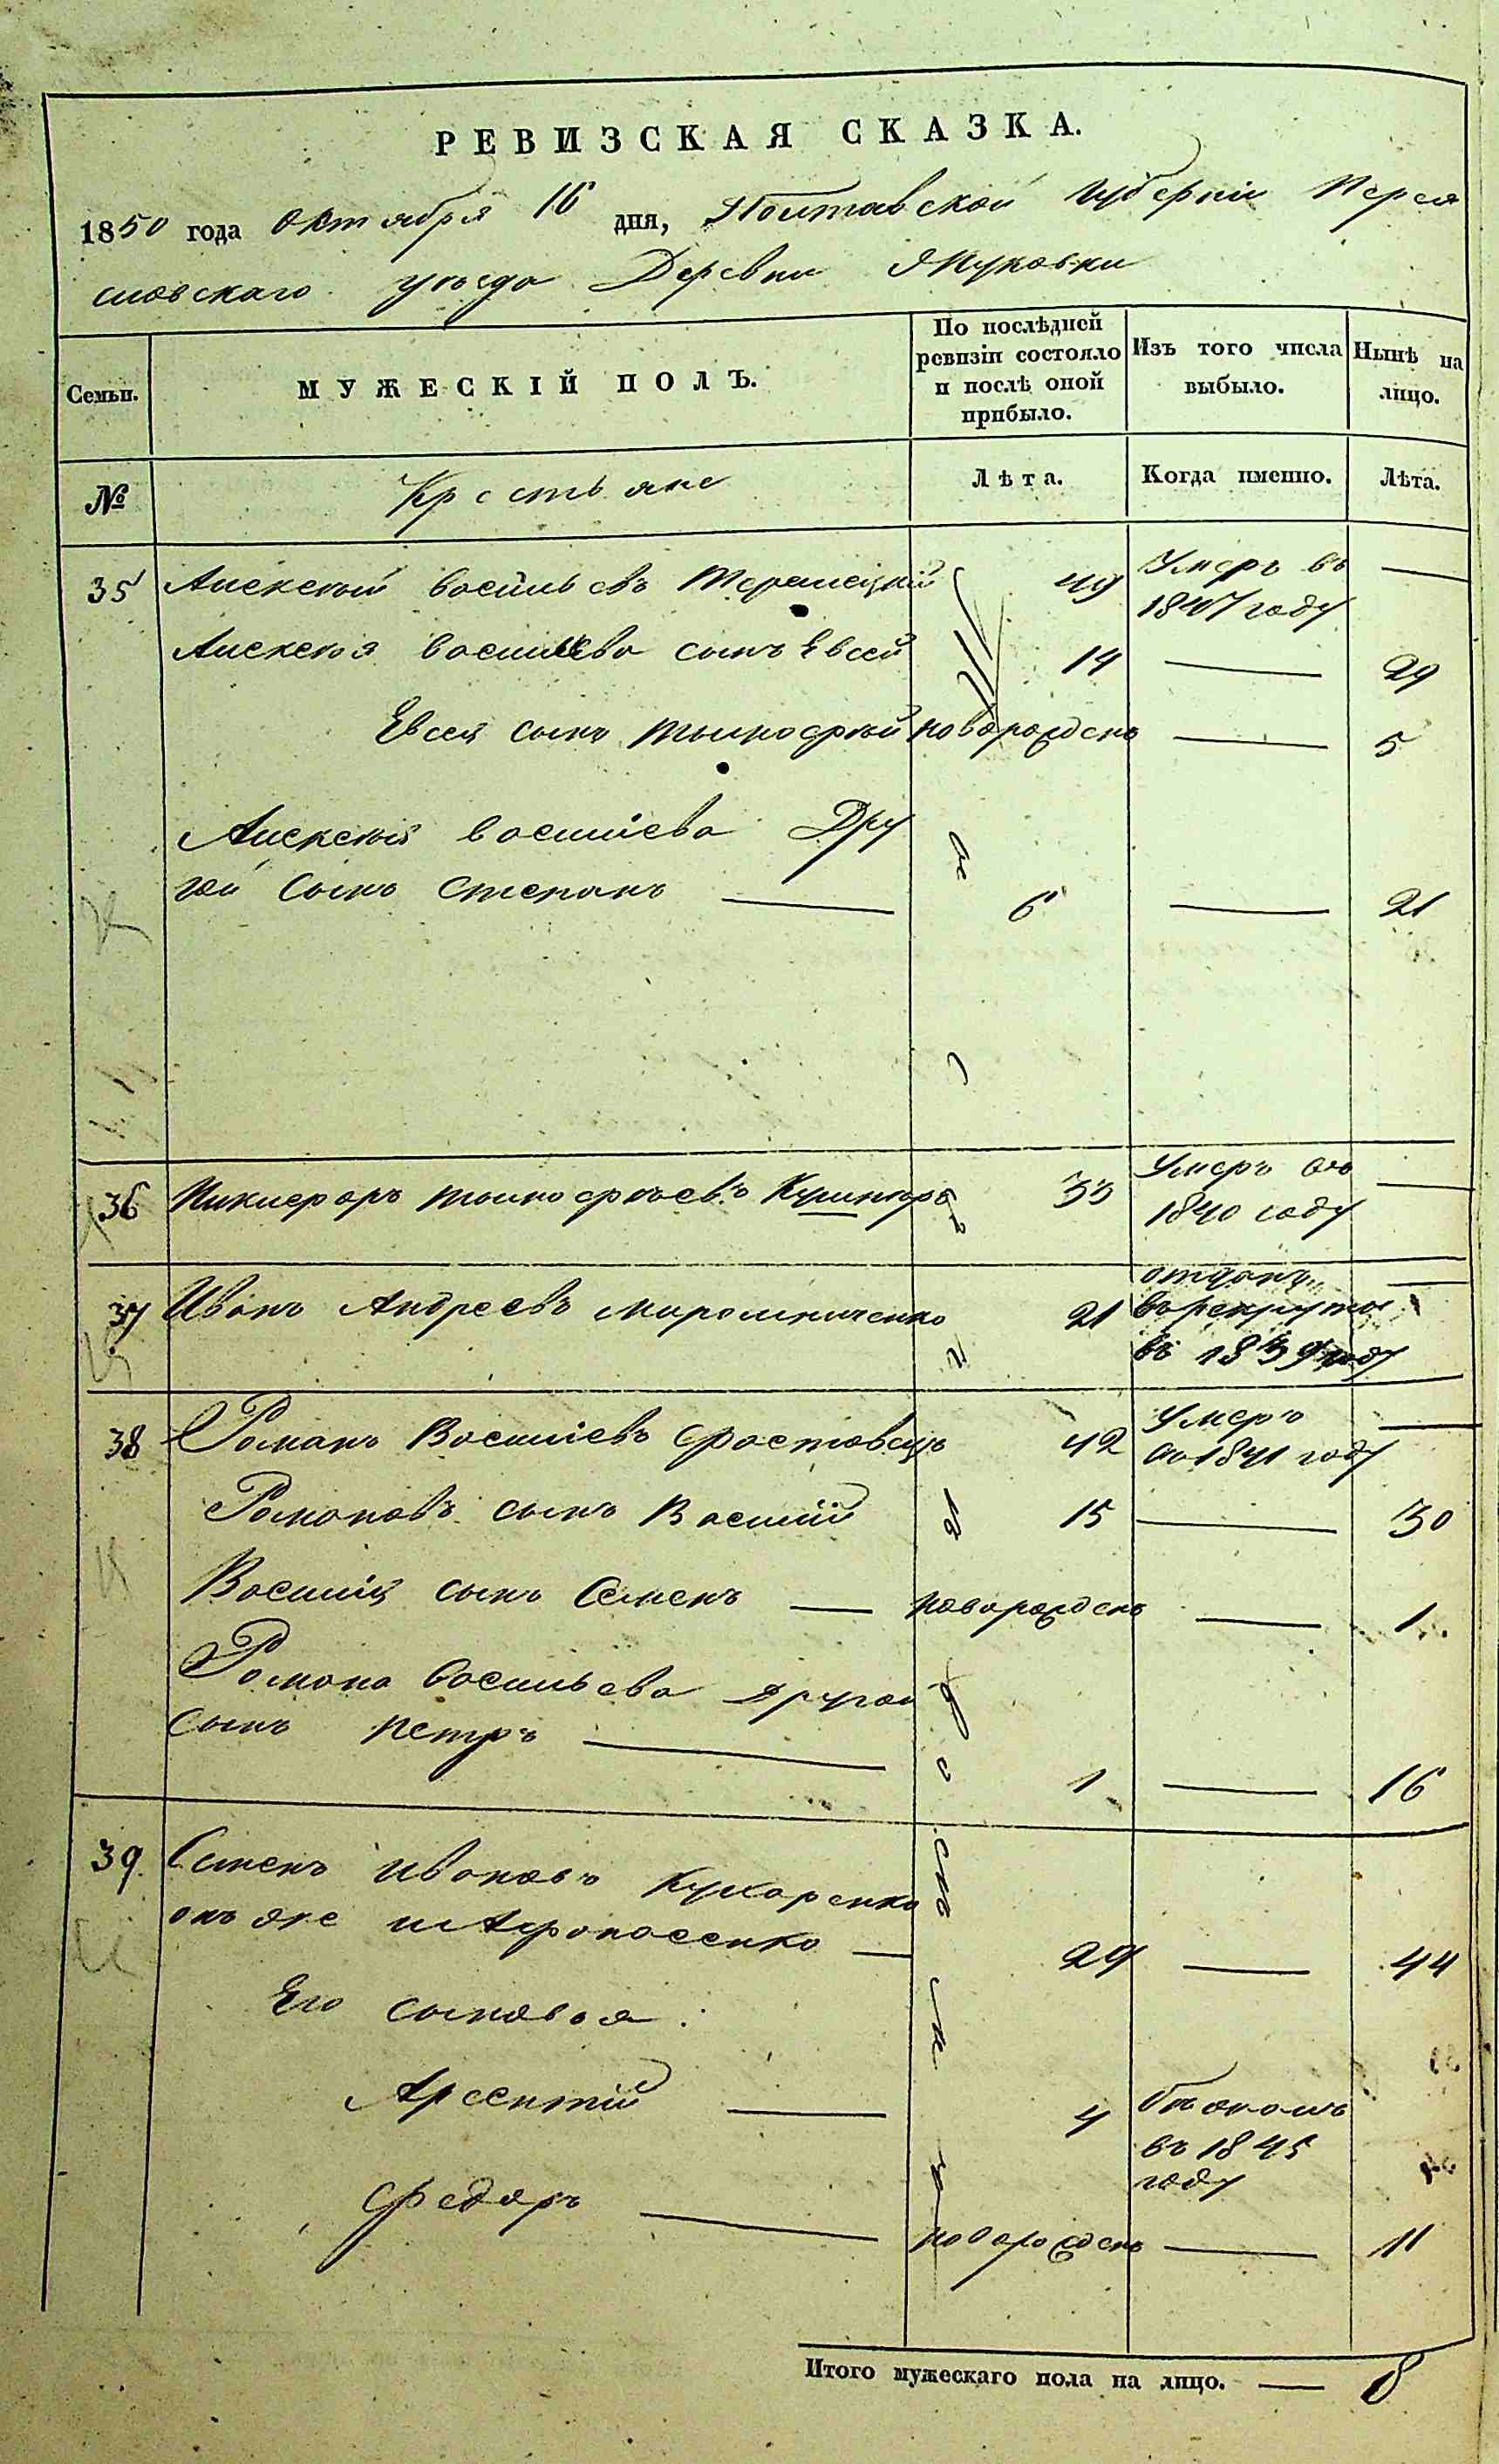 РЕВИЗСКАЯ СКАЗКА.
1850 года Октября 16 дня, Полтавской Губерніи Перея
славскаго уѣзда Деревни Яцковки
Семьи.
МУЖЕСКІЙ ПОЛЪ.
По послѣдней ревизіи состояло и послѣ оной прибыло.
Изъ того числа выбыло.
Нынѣ на лицо.
№
Крестьяне
Лѣта.
Когда именно.
Лѣта.
35 Алексѣй Васильевъ 49 Умеръ въ —
1847 году
Алексѣя Васильева сынъ Евсей 14 — 29
Евсея сынъ Тимофѣй новорожденъ — 5
Алексѣя Васильева Дру
гой Сынъ Степанъ — 6 — 21
36 Никифоръ Тимофѣевъ 33 Умеръ въ —
1840 году
37 Иванъ Андреевъ Мирошниченко 21 отданъ —
въ рекруты
въ 1839 году
38 Романъ Василіевъ Фастовецъ 42 Умеръ —
въ 1841 году
Романовъ сынъ Василій 15 — 30
Василія сынъ Семенъ — новорожденъ — 1
Романа Васильева другой
Сынъ Петръ — 1 — 16
39. Семенъ Ивановъ Кухаренко
онъ же и Афонасенко — 29 — 44
Его сыновья:
Арсентій — 4 бѣжалъ
въ 1845
году
Федоръ — новорожденъ — 11
Итого мужескаго пола на лицо. — 8